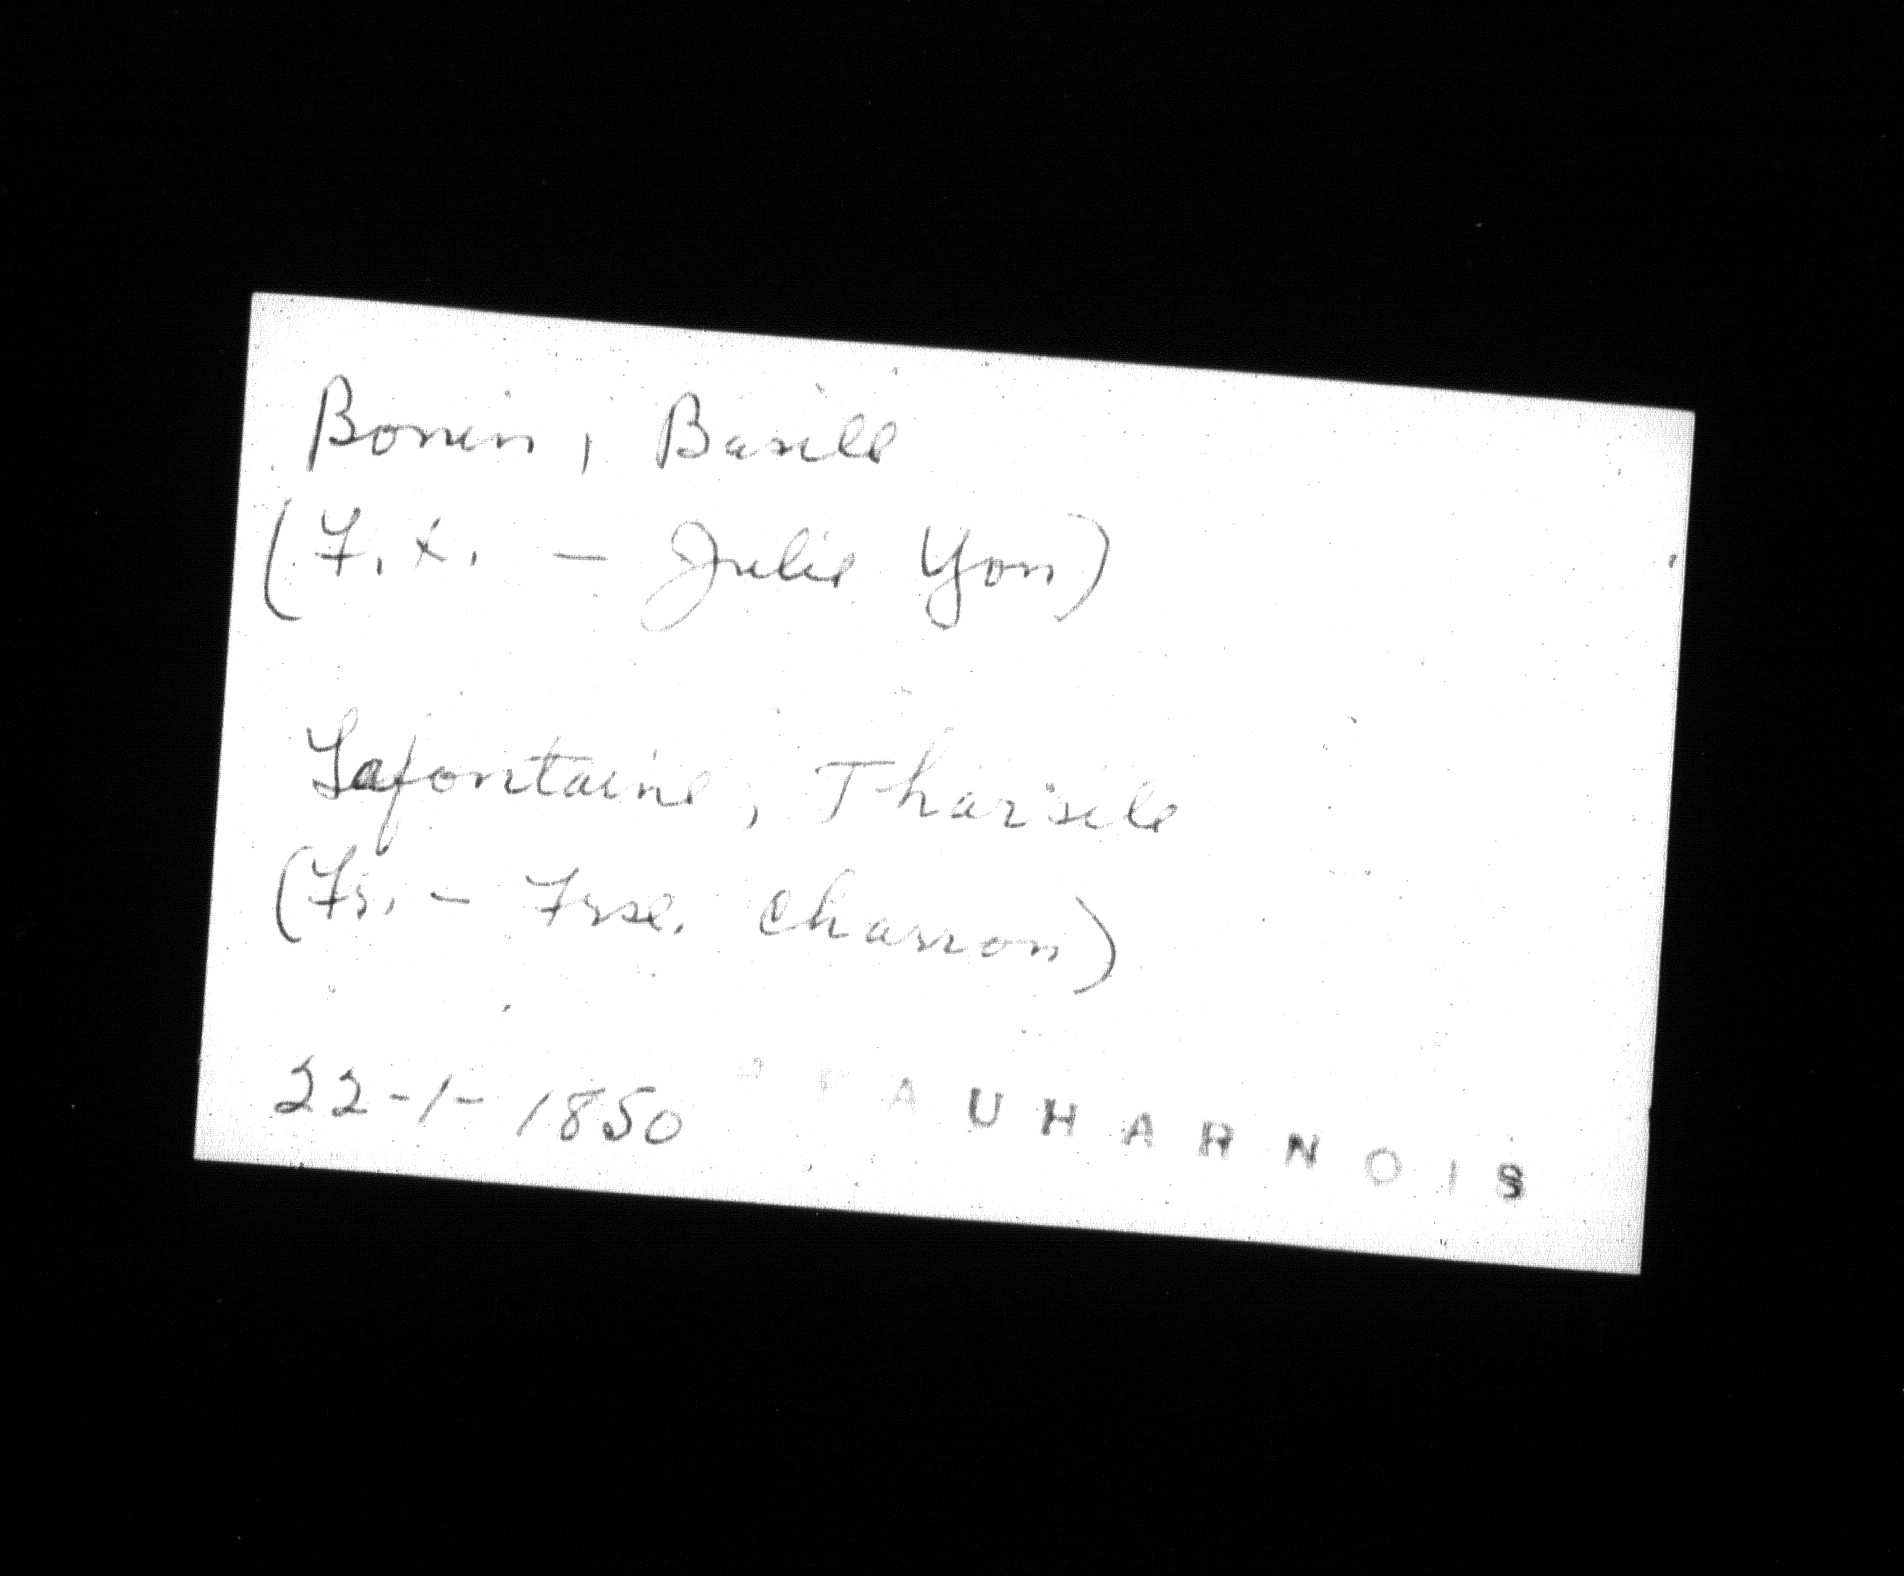 Bonin, Basile
(F.X. - Julie Yon)
Lafontaine, Tharsile
(Frs. - Frse. Charron)
22-1-1850 BEAUHARNOIS